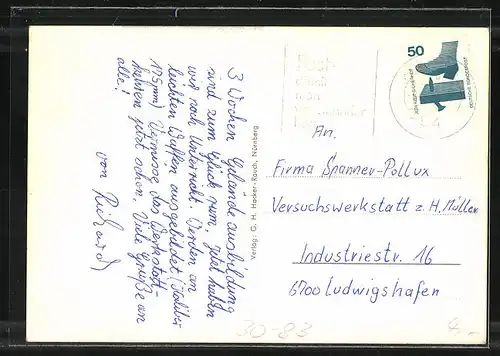 3 Wochen Geländeausbildung
sind zum Glück rum, jetzt haben
wir noch Unterricht. Werden an
leichten Waffen ausgebildet (Kaliber
175mm) Vermisse das Werkstatt-
jetzt schon. Viele Grüße an
alle!
von Richard
Verlag: G. H. Hacker-Rauch, Nürnberg
Post-
50
DEUTSCHE BUNDESPOST
An.
Firma Spanner-Pollux
Versuchswerkstatt z. H. Müller
Industriestr. 16
6700 Ludwigshafen
30-83